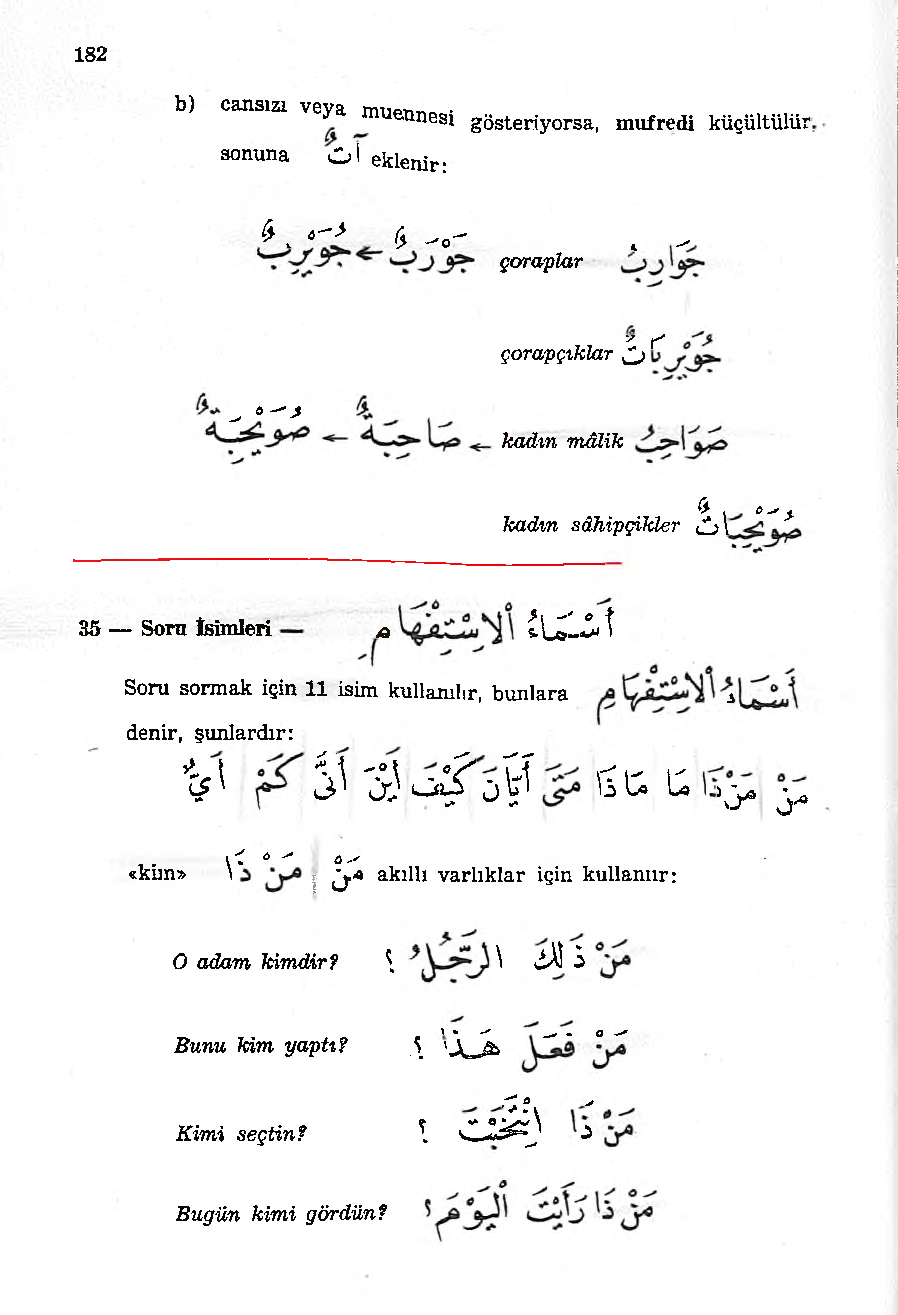 182
b) cansızı veya muennesi gösteriyorsa, mufredi küçültülür,
sonuna آتٌ eklenir:
جَوَارِبُ çoraplar جَوْرَبٌ ← جُوَيْرِبٌ
çorapçıklar جُوَيْرِبَاتٌ
صَوَاحِبُ kadın mâlik ← صَاحِبَةٌ ← صُوَيْحِبَةٌ
kadın sâhipçikler صُوَيْحِبَاتٌ
35 — Soru İsimleri — أَسْمَاءُ الْاِسْتِفْهَامِ
Soru sormak için 11 isim kullanılır, bunlara أَسْمَاءُ الْاِسْتِفْهَامِ
denir, şunlardır:
مَنْ مَنْ ذَا مَا مَاذَا مَتَى أَيَّانَ كَيْفَ أَيْنَ أَنَّى كَمْ أَيٌّ
«kim» مَنْ مَنْ ذَا akıllı varlıklar için kullanılır:
O adam kimdir? مَنْ ذَلِكَ الرَّجُلُ ؟
Bunu kim yaptı? مَنْ فَعَلَ هَذَا ؟
Kimi seçtin? مَنْ ذَا انْتَخَبْتَ ؟
Bugün kimi gördün? مَنْ ذَا رَأَيْتَ الْيَوْمَ ؟